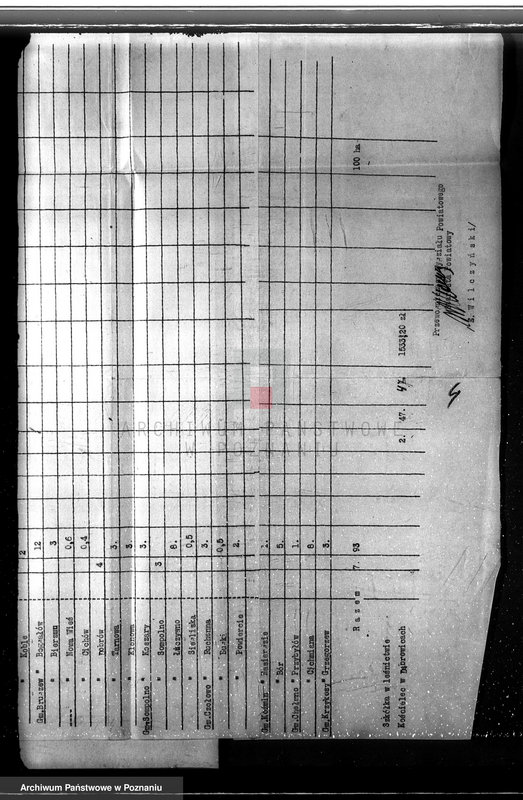 " Koble 2
Gm.Brudzew " Bogdałów 12
" " Bierzmo 3
" " Nowa Wieś 0,6
" " Cichów 0,4
" " 4
" " Tarnowa 3.
" " Klonowa 3.
Gm.Sompolno " Koszary 3.
" " Sompolno 3
" " Łuczywno 8.
" " Siedliska 0,5
Gm.Czołowo " Ruchenna 3.
" " 0,5
" " Powiercie 2.
Gm.Koźmin " 1.
" " Bór 5.
Gm.Czołowo " Przybyłów 1.
" " Cichmiana 8.
Gm.Krzykosy " Grzegorzew 3.
Razem 7. 93
Szkółka w leśnictwie
Kościelec w Dąbrowicach 2. 47. 47. 1533,20 zł 100 ha
Przewodniczący Wydziału Powiatowego
Starosta Powiatowy
/ Wilczyński/
ARCHIWUM PAŃSTWOWE
W POZNANIU
Archiwum Państwowe w Poznaniu